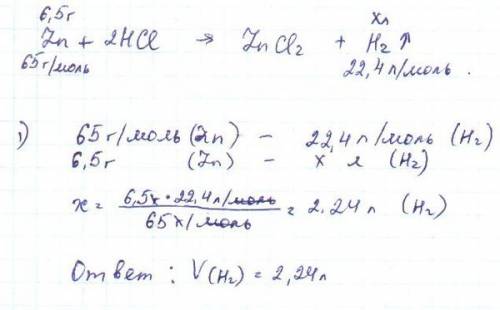 6,5г Xл
Zn + 2HCl → ZnCl₂ + H₂ ↑
65г/моль 22,4 л/моль .
1) 65 г/моль (Zn) – 22,4 л/моль (H₂)
6,5г (Zn) – x л (H₂)
x = 6,5г · 22,4 л/моль / 65г/моль = 2,24 л (H₂)
Ответ : V(H₂) = 2,24л